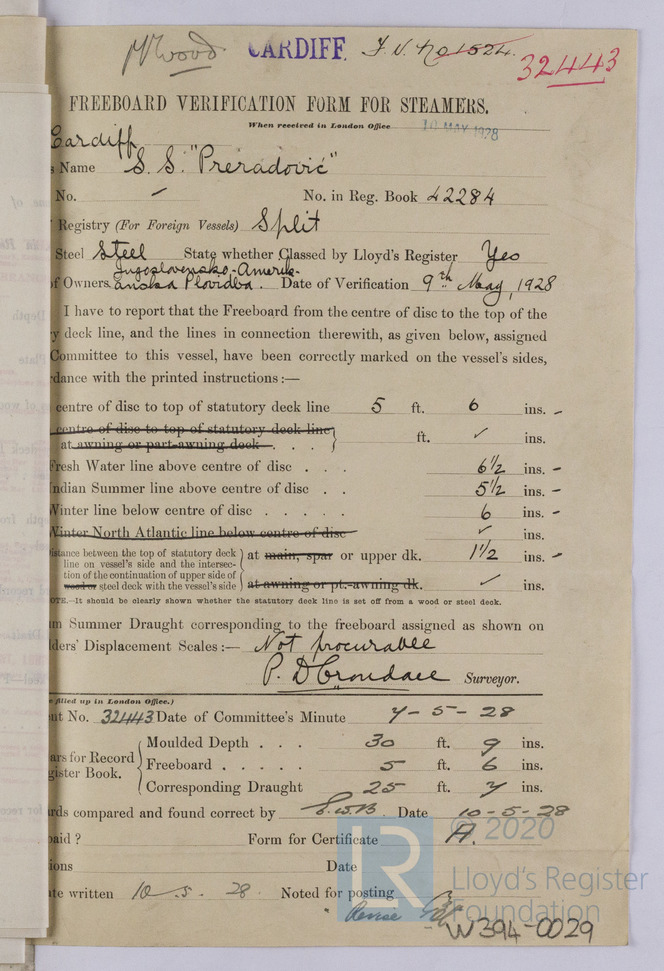 Wood CARDIFF. F.V. No 1524.
32443
FREEBOARD VERIFICATION FORM FOR STEAMERS.
When received in London Office 10 MAY 1928
Cardiff
s Name S.S. "Preradović"
No. No. in Reg. Book 42284
Registry (For Foreign Vessels) Split
Steel Steel State whether Classed by Lloyd's Register Yes
Jugoslavensko-Amerik-
of Owners. anska Plovidba. Date of Verification 9th May, 1928
I have to report that the Freeboard from the centre of disc to the top of the
y deck line, and the lines in connection therewith, as given below, assigned
Committee to this vessel, have been correctly marked on the vessel's sides,
rdance with the printed instructions:—
centre of disc to top of statutory deck line 5 ft. 6 ins. –
centre of disc to top of statutory deck line
at awning or part-awning deck . . . ft. ✓ ins.
Fresh Water line above centre of disc . . . 6 1/2 ins. –
Indian Summer line above centre of disc . . 5 1/2 ins. –
Winter line below centre of disc . . . . . 6 ins. –
Winter North Atlantic line below centre of disc ✓ ins.
istance between the top of statutory deck
line on vessel's side and the intersec- at main, spar or upper dk. 1 1/2 ins. –
tion of the continuation of upper side of
wood or steel deck with the vessel's side at awning or pt.-awning dk. ✓ ins.
OTE.—It should be clearly shown whether the statutory deck line is set off from a wood or steel deck.
m Summer Draught corresponding to the freeboard assigned as shown on
ders' Displacement Scales:— Not procurable
Surveyor.
e filled up in London Office.)
nt No. 32443 Date of Committee's Minute 7-5-28
Moulded Depth . . . 30 ft. 9 ins.
ars for Record
gister Book. Freeboard . . . . . 5 ft. 6 ins.
Corresponding Draught 25 ft. 7 ins.
rds compared and found correct by Date 10-5-28
paid? Form for Certificate A.
© 2020
ions Date
Lloyd's Register
Foundation
te written 10.5.28. Noted for posting
W394-0029